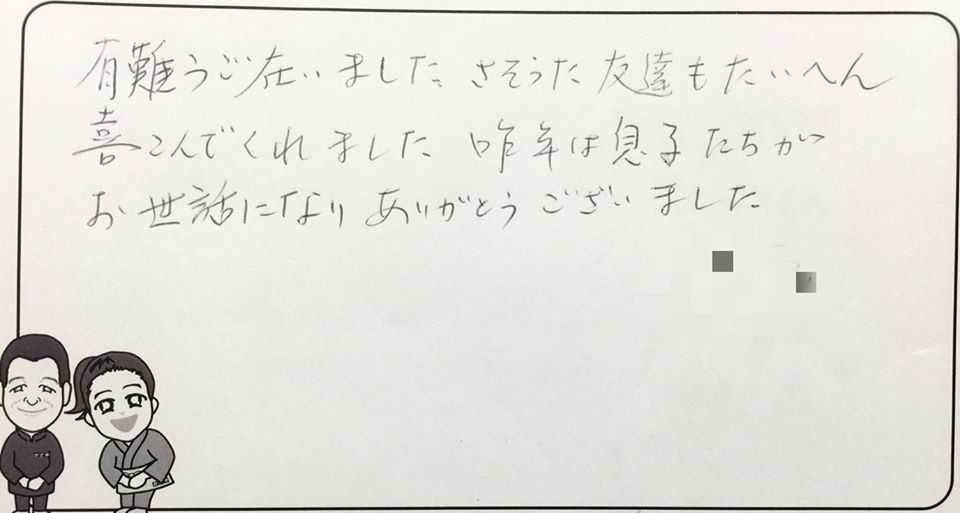 有難うご在いました。さそうた友達もたいへん
喜こんでくれました 昨年は息子たちが
お世話になりありがとうございました